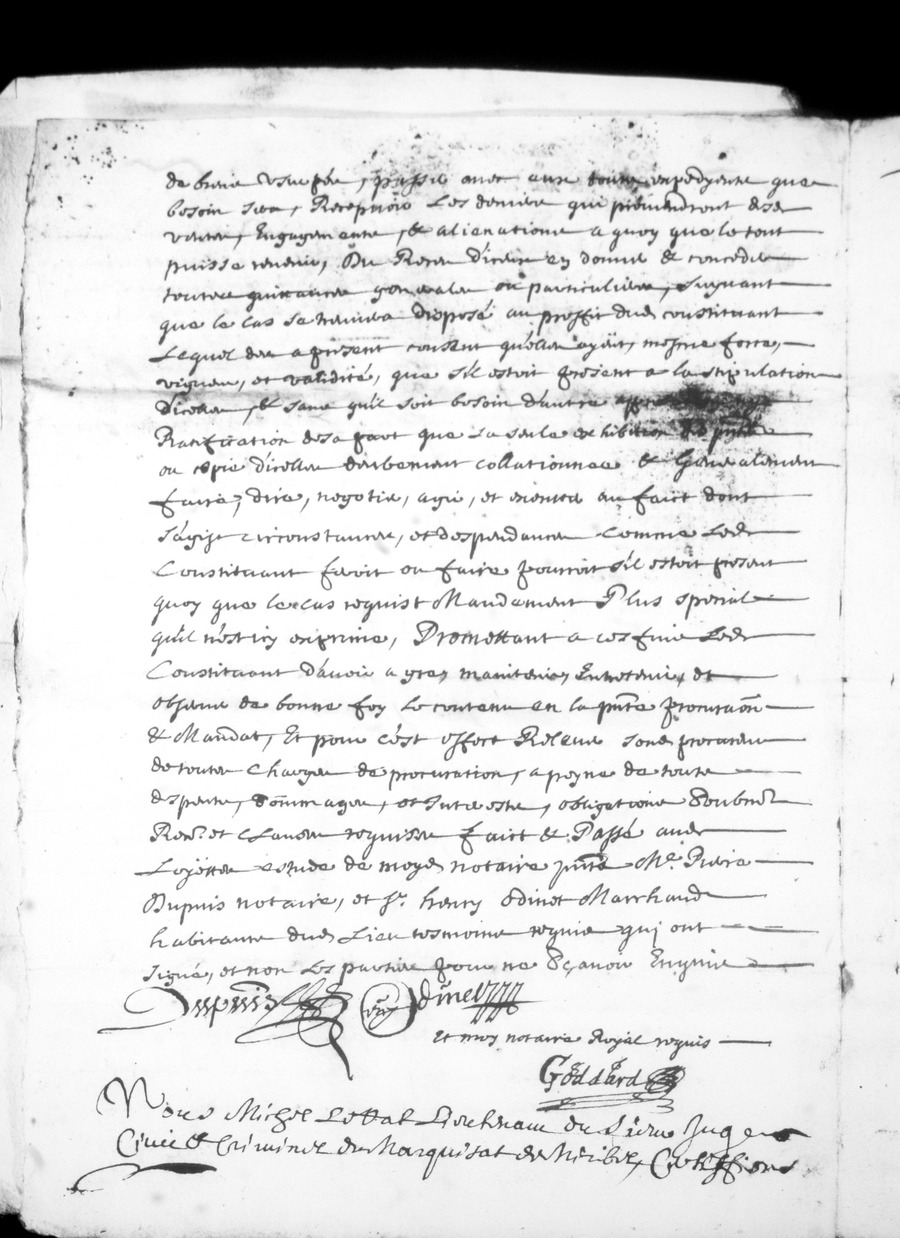 de biens usurpés, passer avec eux toutes expedyents que
besoin sera, Recepvoir Les deniers qui proviendront desd
ventes, Engagements, & alienations a quoy que le tout
puisse revenir, Du Receu d'iceux en donner & conceder
toutes quittances generales ou particulieres, suyvant
que le cas se treuvera disposé au proffit dud constituant
Lequel des a present consent qu'elles ayent, mesme force,
vigueur, et validité, que s'il estoit present a la stipulation
d'icelles, & sans qu'il soit besoin d'autre
Ratification de sa part que la seule exhibition des pntes
ou copie d'icelles deubement collationnee & Generalement
faire, dire, negotier, agir, et exercer au faict dont
s'agist circonstances, et despendances comme led
Constituant feroit ou faire pourroit s'il estoit present
quoy que le cas requist Mandement Plus special
qu'il n'est icy exprimé, Promettant a ces fins Led
Constituant d'avoir a gre, maintenir, Entretenir, et
observer de bonne foy le contenu en la pnte procuraon
& Mandat, Et pour c'est effect Relever sond procureur
de toutes Charges de procuration, a peyne de touts
despents, dommages, et Interests, obligations
Renon et Clauses requises faict & Passé aud
Loyettes estude de moyd notaire pnts Me Pierre
Dupuis notaire, et Sr. henry Odinet Marchand
habitants dud Lieu tesmoins requis qui ont
signé, et non Les parties pour ne sçavoir Enquis
Dupuis Odinet
Et moy notaire Royal requis
Goddard
Nous Michel Lieutenant Juge
Civil & Criminel du Marquisat de Miribel, Certiffions